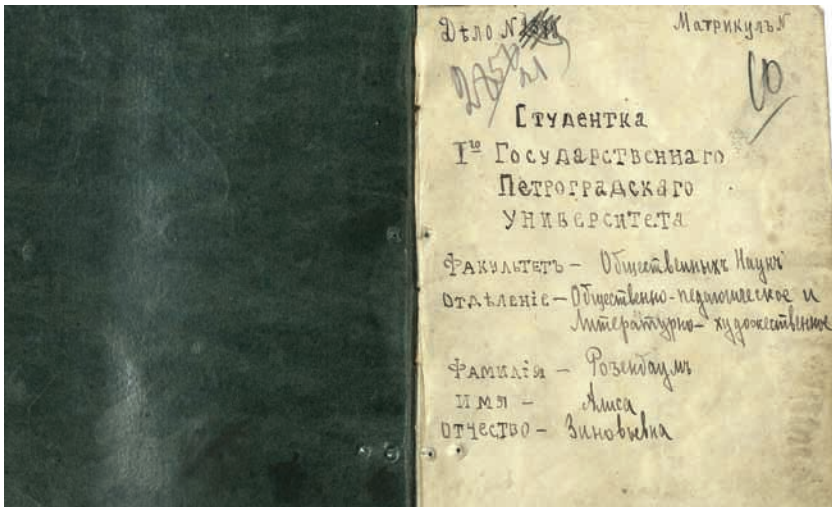 Дѣло N
Матрикулъ N
10
Студентка
Iго Государственнаго
Петроградскаго
Университета
Факультетъ – Общественныхъ Наукъ
Отдѣленіе – Общественно-педагогическое и
Литературно-художественное
Фамилія – Розенбаумъ
Имя – Алиса
Отчество – Зиновьевна